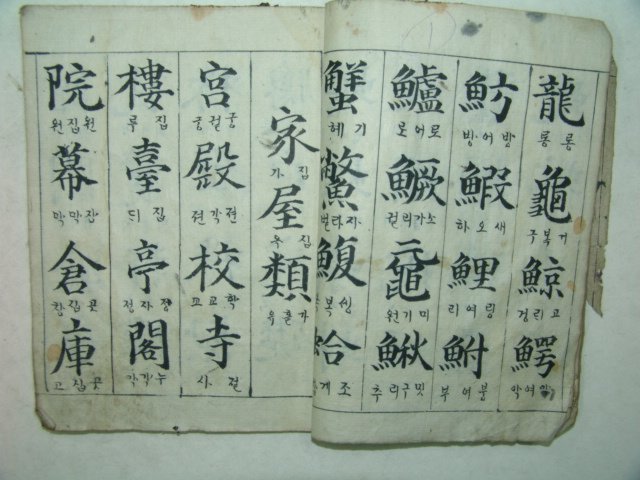 龍
룡룡
龜
거북구
鯨
고리경
鰐
악어악
魴
방어방
鰕
새오하
鯉
링어리
鮒
붕어부
鱸
로어로
鱖
소가리걸
黿
미기원
鰍
밋구리추
蟹
기헤
鱉
자라별
鰒
싱복
蛤
조게
家
집가
屋
집옥
類
宮
궁궐궁
殿
젼각젼
校
학교교
寺
졀사
樓
집루
臺
집듸
亭
정자정
閣
누각각
院
원집원
幕
장막막
倉
곳집창
庫
곳집고